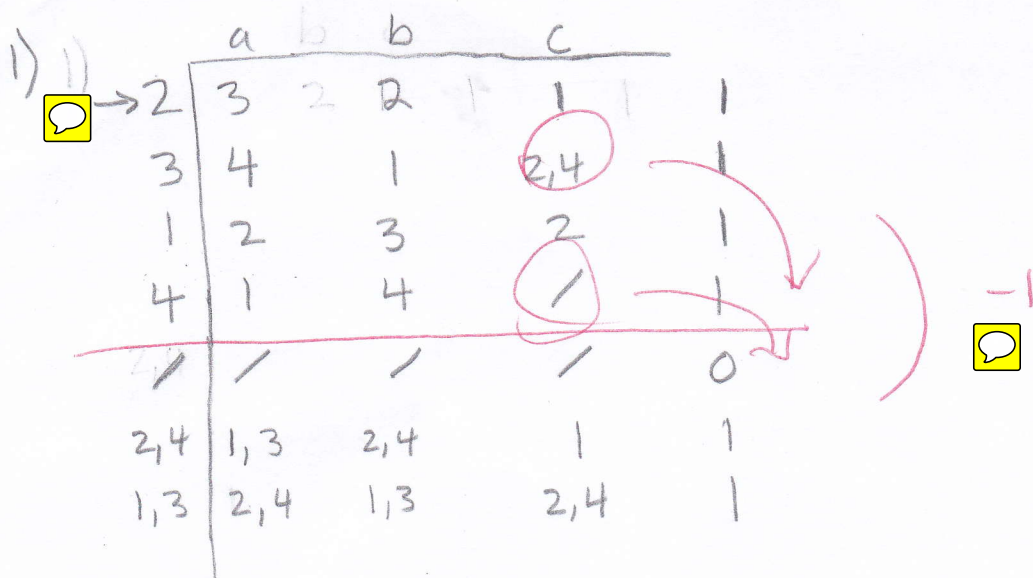 1) a b c
→2 3 2 1 1
3 4 1 2,4 1
1 2 3 2 1
4 1 4 / 1
-1
/ / / / 0
2,4 1,3 2,4 1 1
1,3 2,4 1,3 2,4 1